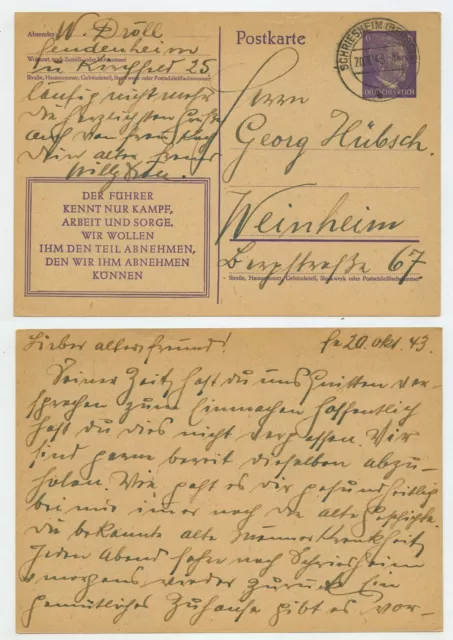 Absender: W. Dröll
Feudenheim
Wohnort, auch Zustell- oder Leitpostamt
In Kirchfeld 25
Straße, Hausnummer, Gebäudeteil, Stockwerk oder Postschließfachnummer
läufig nicht mehr
die herzlichsten Grüße
auch von
Dein alter Freund
Willy Dröll
DER FÜHRER
KENNT NUR KAMPF,
ARBEIT UND SORGE.
WIR WOLLEN
IHM DEN TEIL ABNEHMEN,
DEN WIR IHM ABNEHMEN
KÖNNEN
Postkarte
SCHRIESHEIM
DEUTSCHES REICH
6
Herrn
Georg Hübsch.
Weinheim
Bergstraße 67
Straße, Hausnummer, Gebäudeteil, Stockwerk oder Postschließfachnummer
Lieber alter Freund! Fe 20. Okt. 43.
Seiner Zeit hast du uns Quitten ver-
sprochen zum Einmachen hoffentlich
hast du dies nicht vergessen. Wir
sind gerne bereit dieselben abzu-
holen. Wie geht es dir gesundheitlich
bei mir imer noch die alte Geschichte
die bekannte alte Männer Krankheit
Jeden Abend fahre nach Schriesheim
u morgens wieder zurück Ein
gemütliches Zuhause gibt es vor-